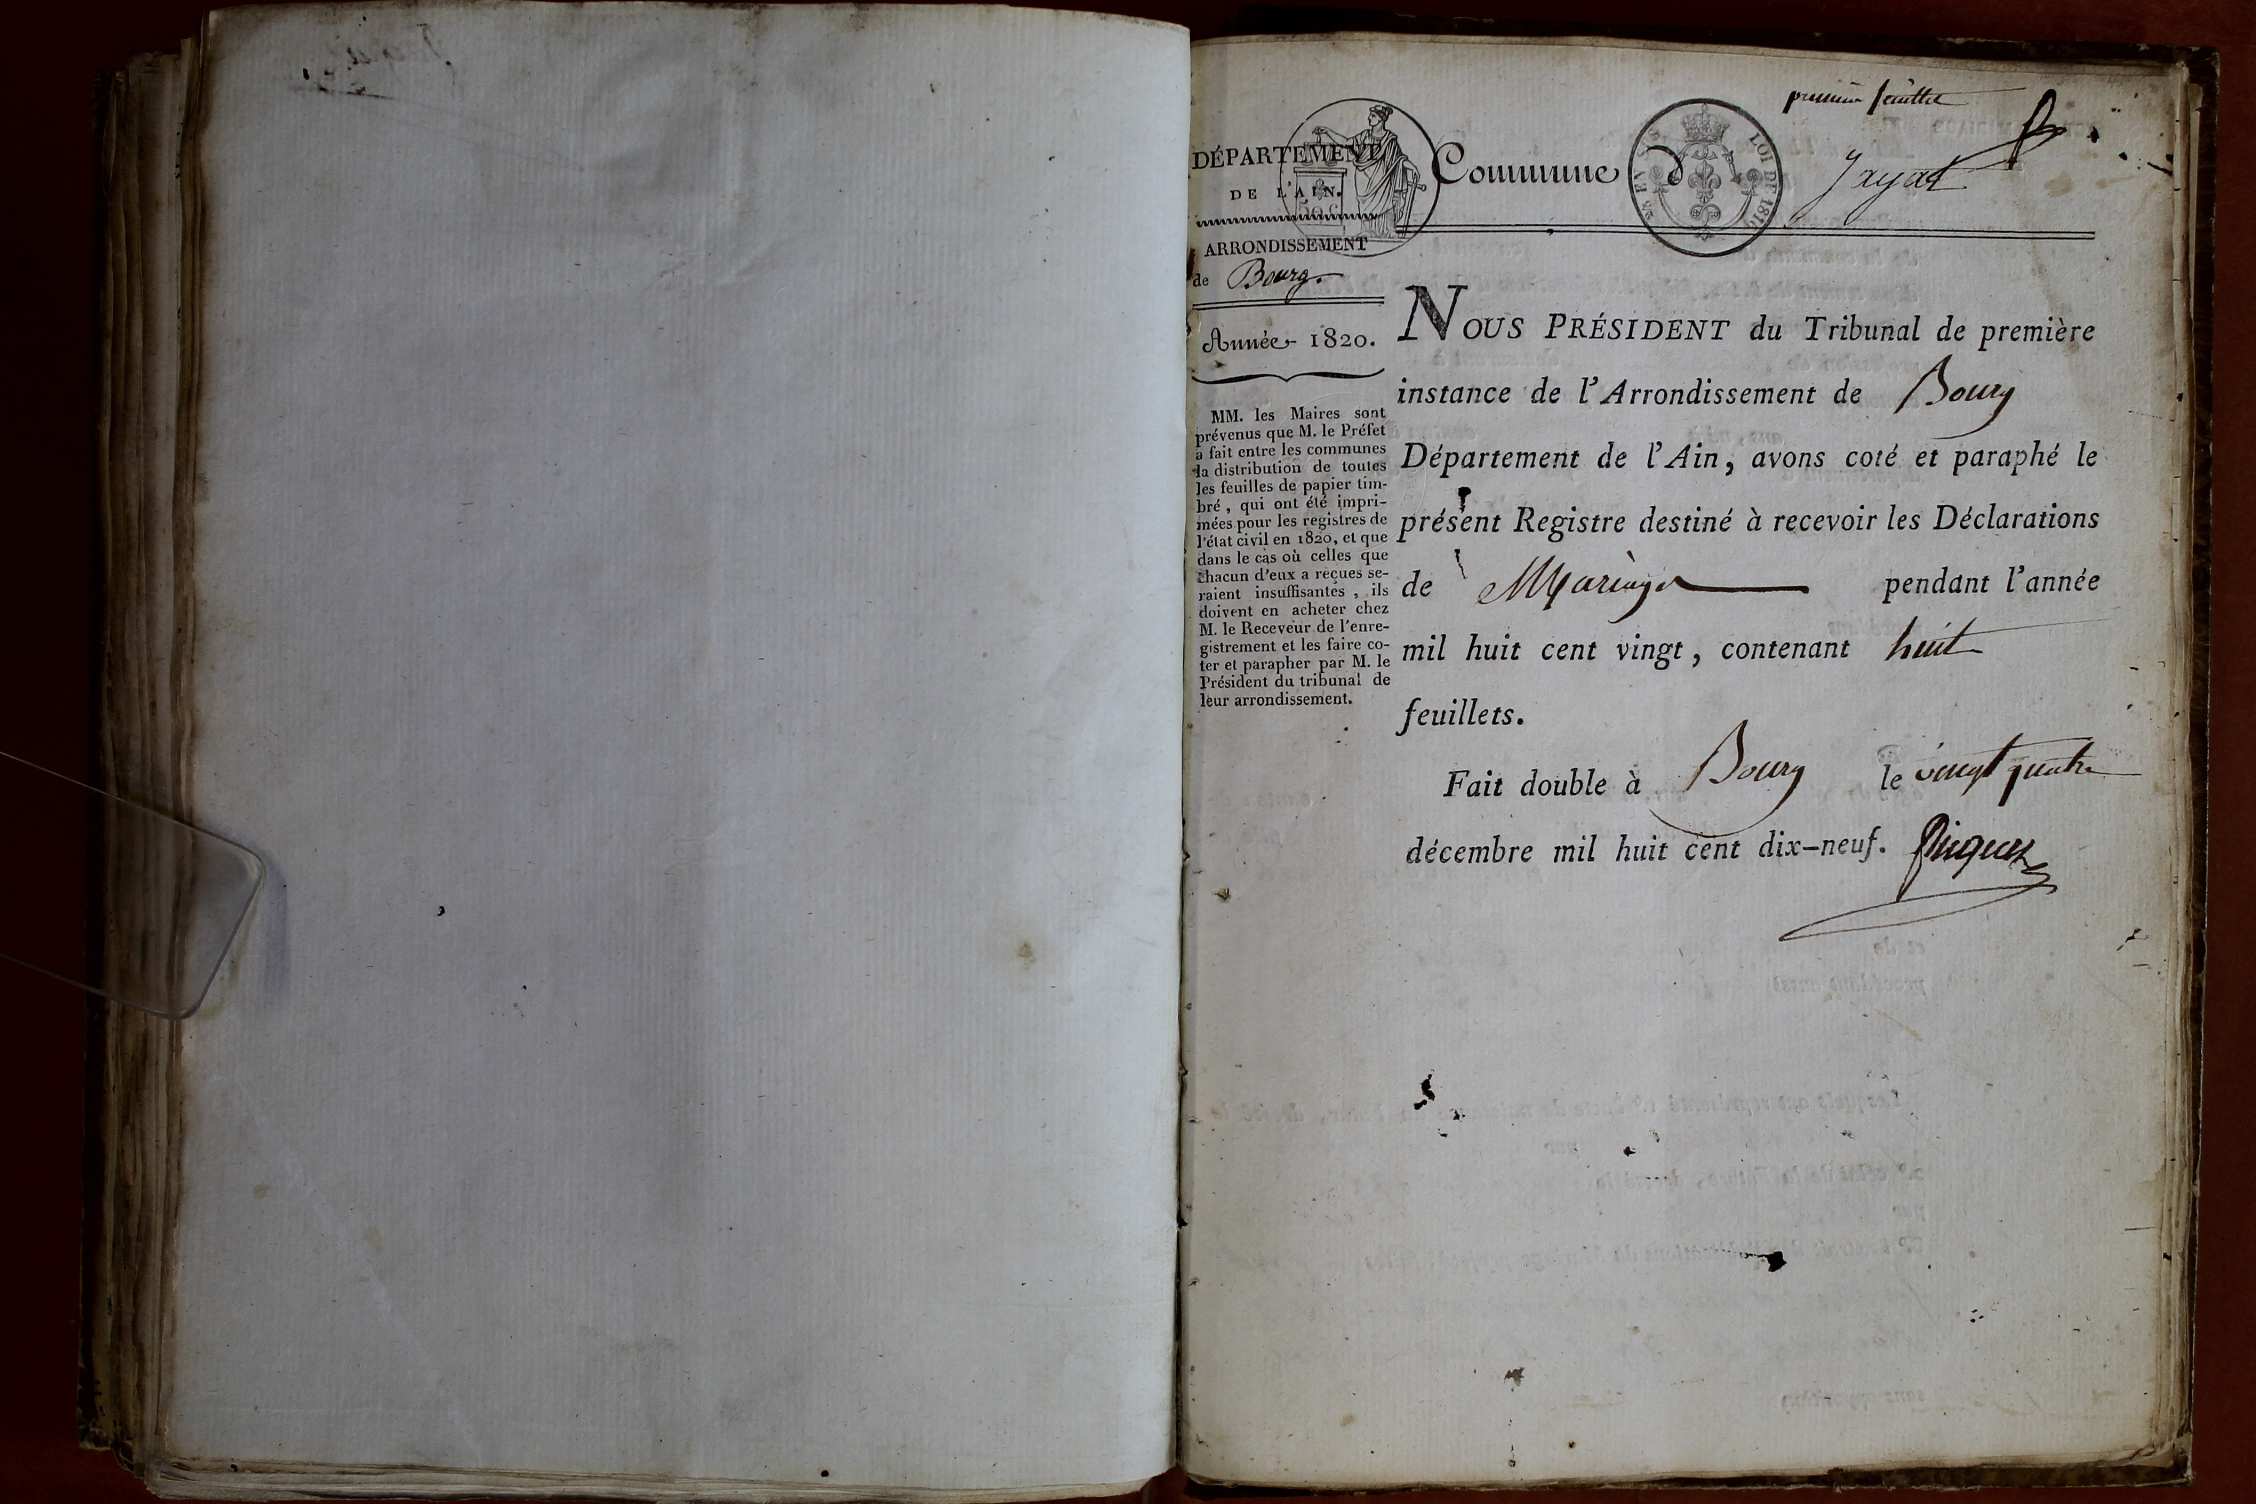 premier feuillet
DÉPARTEMENT
DE L'AIN.
50 c
Commune d
LOI DE 1816
Jayat
ARRONDISSEMENT
de Bourg.
Année 1820.
MM. les Maires sont
prévenus que M. le Préfet
a fait entre les communes
la distribution de toutes
les feuilles de papier tim-
bré, qui ont été impri-
mées pour les registres de
l'état civil en 1820, et que
dans le cas où celles que
chacun d'eux a reçues se-
raient insuffisantes, ils
doivent en acheter chez
M. le Receveur de l'enre-
gistrement et les faire co-
ter et parapher par M. le
Président du tribunal de
leur arrondissement.
NOUS PRÉSIDENT du Tribunal de première
instance de l'Arrondissement de Bourg
Département de l'Ain, avons coté et paraphé le
présent Registre destiné à recevoir les Déclarations
de Mariage pendant l'année
mil huit cent vingt, contenant huit
feuillets.
Fait double à Bourg le vingt quatre
décembre mil huit cent dix-neuf.